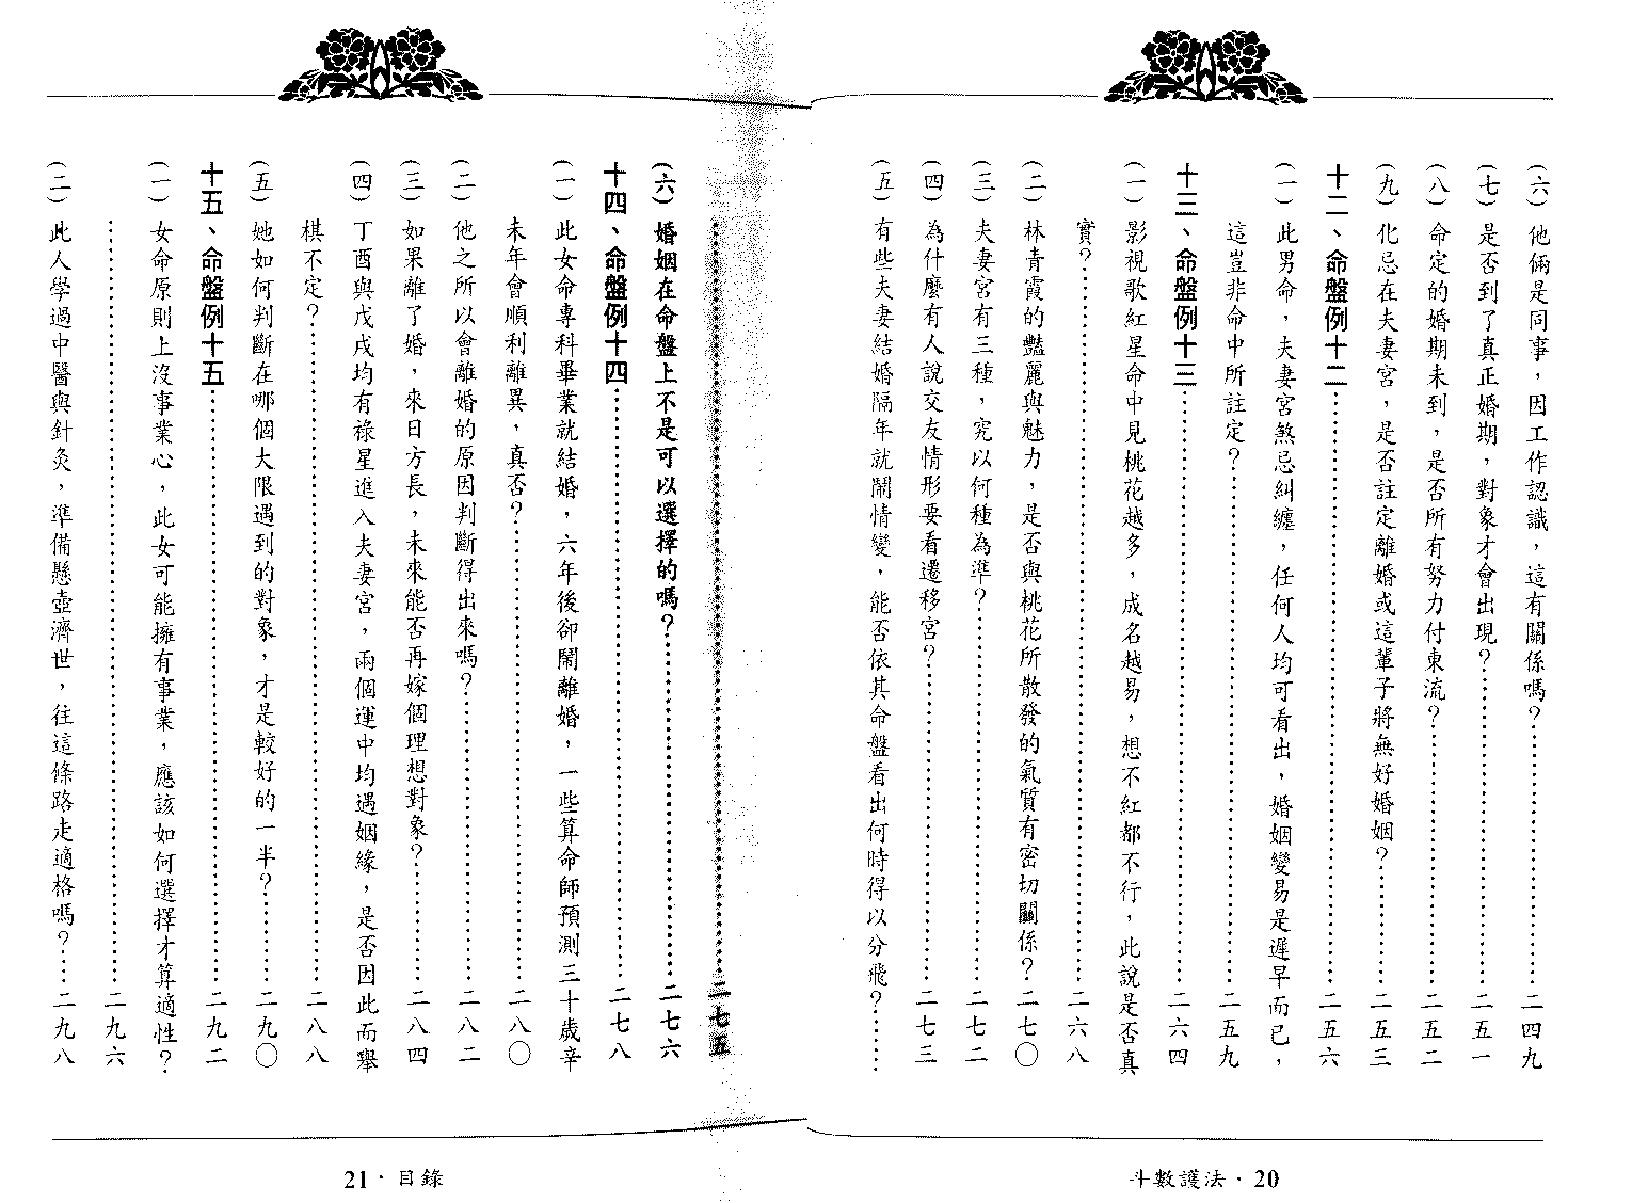 (六)他倆是同事，因工作認識，這有關係嗎？⋯⋯二四九
(七)是否到了真正婚期，對象才會出現？⋯⋯二五一
(八)命定的婚期未到，是否所有努力付東流？⋯⋯二五二
(九)化忌在夫妻宮，是否註定離婚或這輩子將無好婚姻？⋯⋯二五三
十二、命盤例十二⋯⋯二五六
(一)此男命，夫妻宮煞忌糾纏，任何人均可看出，婚姻變易是遲早而已，
這豈非命中所註定？⋯⋯二五九
十三、命盤例十三⋯⋯二六四
(一)影視歌紅星命中見桃花越多，成名越易，想不紅都不行，此說是否真
實？⋯⋯二六八
(二)林青霞的豔麗與魅力，是否與桃花所散發的氣質有密切關係？⋯⋯二七〇
(三)夫妻宮有三種，究以何種為準？⋯⋯二七二
(四)為什麼有人說交友情形要看遷移宮？⋯⋯二七三
(五)有些夫妻結婚隔年就鬧情變，能否依其命盤看出何時得以分飛？⋯⋯
斗數護法·20
⋯⋯二七五
(六)婚姻在命盤上不是可以選擇的嗎？⋯⋯二七六
十四、命盤例十四⋯⋯二七八
(一)此女命專科畢業就結婚，六年後卻鬧離婚，一些算命師預測三十歲辛
未年會順利離異，真否？⋯⋯二八〇
(二)他之所以會離婚的原因判斷得出來嗎？⋯⋯二八二
(三)如果離了婚，來日方長，未來能否再嫁個理想對象？⋯⋯二八四
(四)丁酉與戊戌均有祿星進入夫妻宮，兩個運中均遇姻緣，是否因此而舉
棋不定？⋯⋯二八八
(五)她如何判斷在哪個大限遇到的對象，才是較好的一半？⋯⋯二九〇
十五、命盤例十五⋯⋯二九二
(一)女命原則上沒事業心，此女可能擁有事業，應該如何選擇才算適性？
⋯⋯二九六
(二)此人學過中醫與針灸，準備懸壺濟世，往這條路走適格嗎？⋯⋯二九八
21·目錄